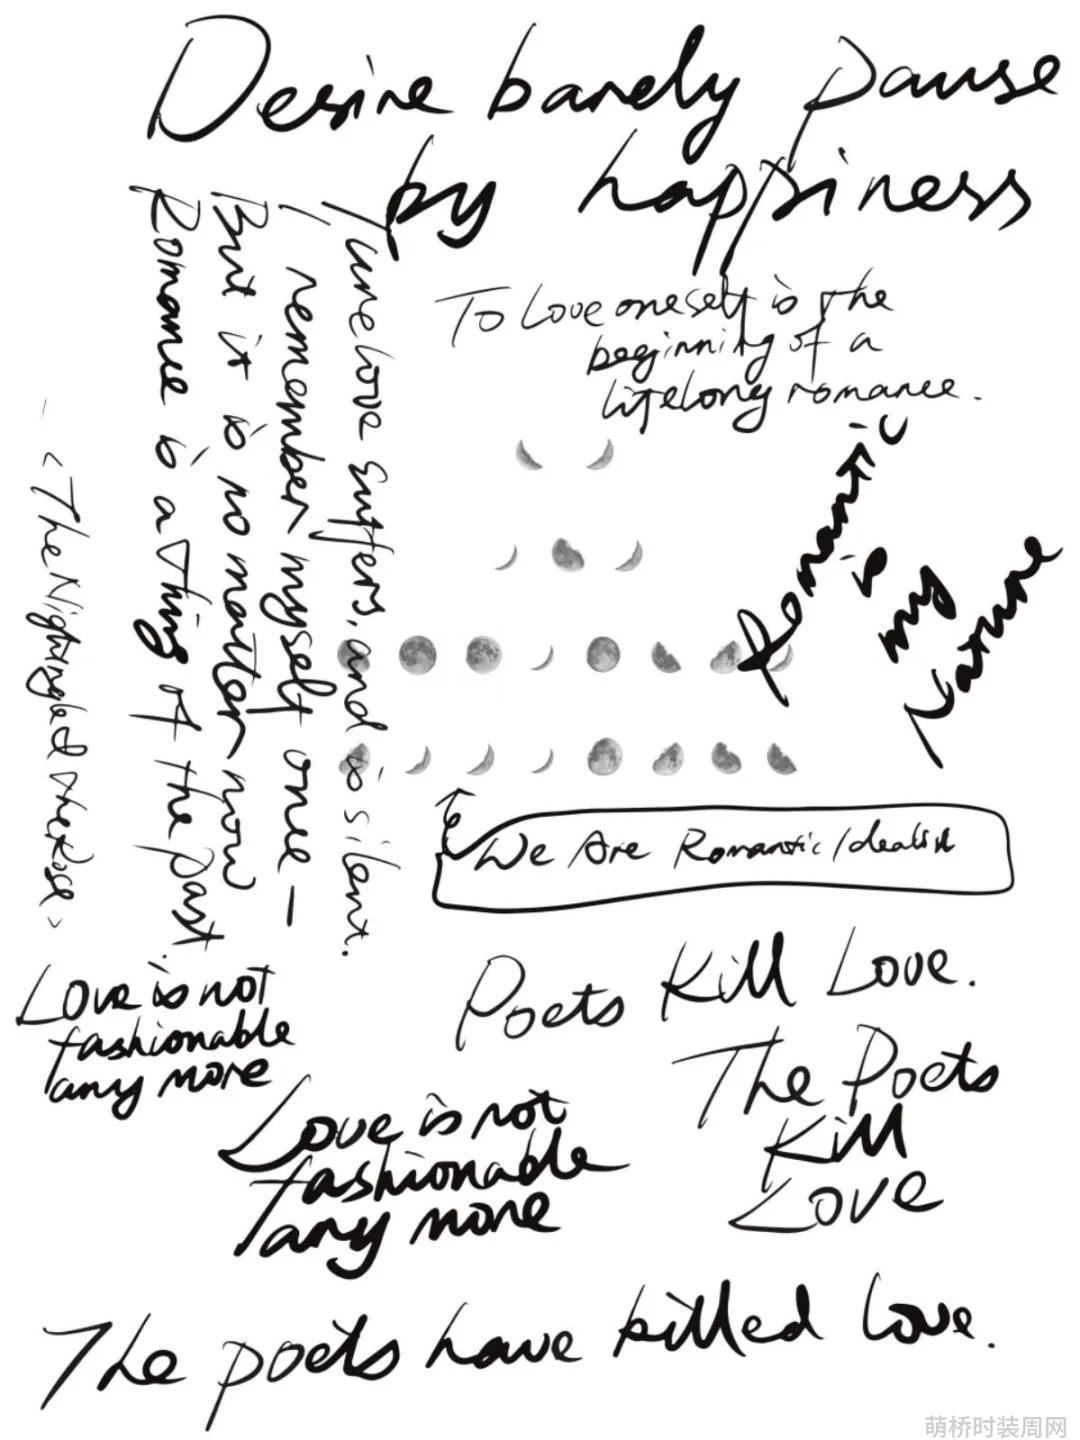 Desire barely pause
by happiness
To Love oneself is the
beginning of a
lifelong romance.
True love suffers, and is silent.
I remember myself one—
But it is no matter now
Romance is a thing of the past.
<The Nightingale & the Rose>
Romantic
is
my
Nature
We Are Romantic Idealist
Poets Kill Love.
The Poets
Kill
Love
Love is not
fashionable
any more
Love is not
fashionable
any more
The poets have killed love.
萌桥时装周网